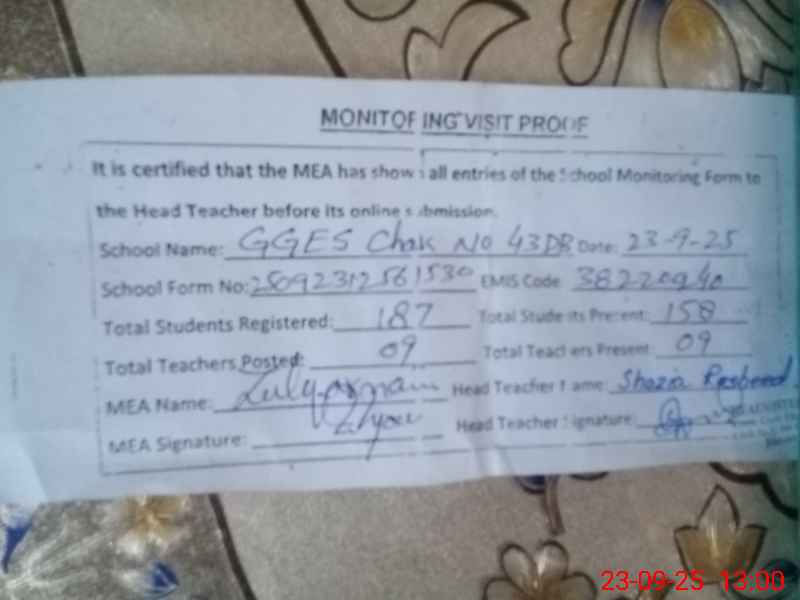 MONITORING VISIT PROOF
It is certified that the MEA has shown all entries of the School Monitoring Form to
the Head Teacher before its online submission.
School Name: GGES Chak No 43DB Date: 23-9-25
School Form No: 25092312561530 EMIS Code 38220940
Total Students Registered: 187 Total Students Present: 158
Total Teachers Posted: 09 Total Teachers Present: 09
MEA Name: Head Teacher Name: Shazia Rasheed
MEA Signature: Head Teacher Signature:
23-09-25 13:00